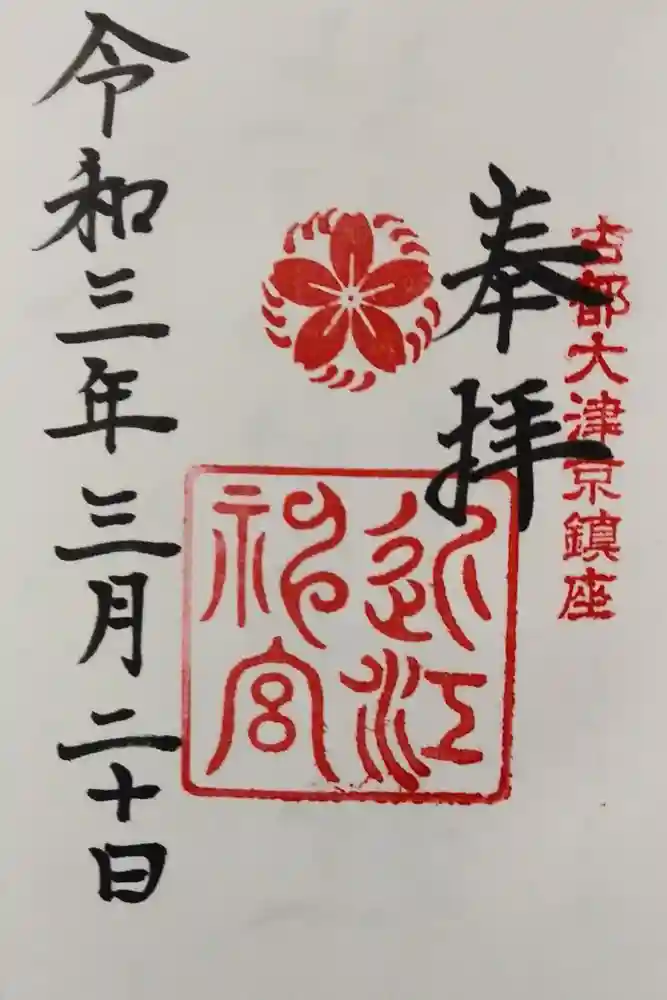 古都大津京鎮座
奉拝
近江
神宮
令和三年三月二十日